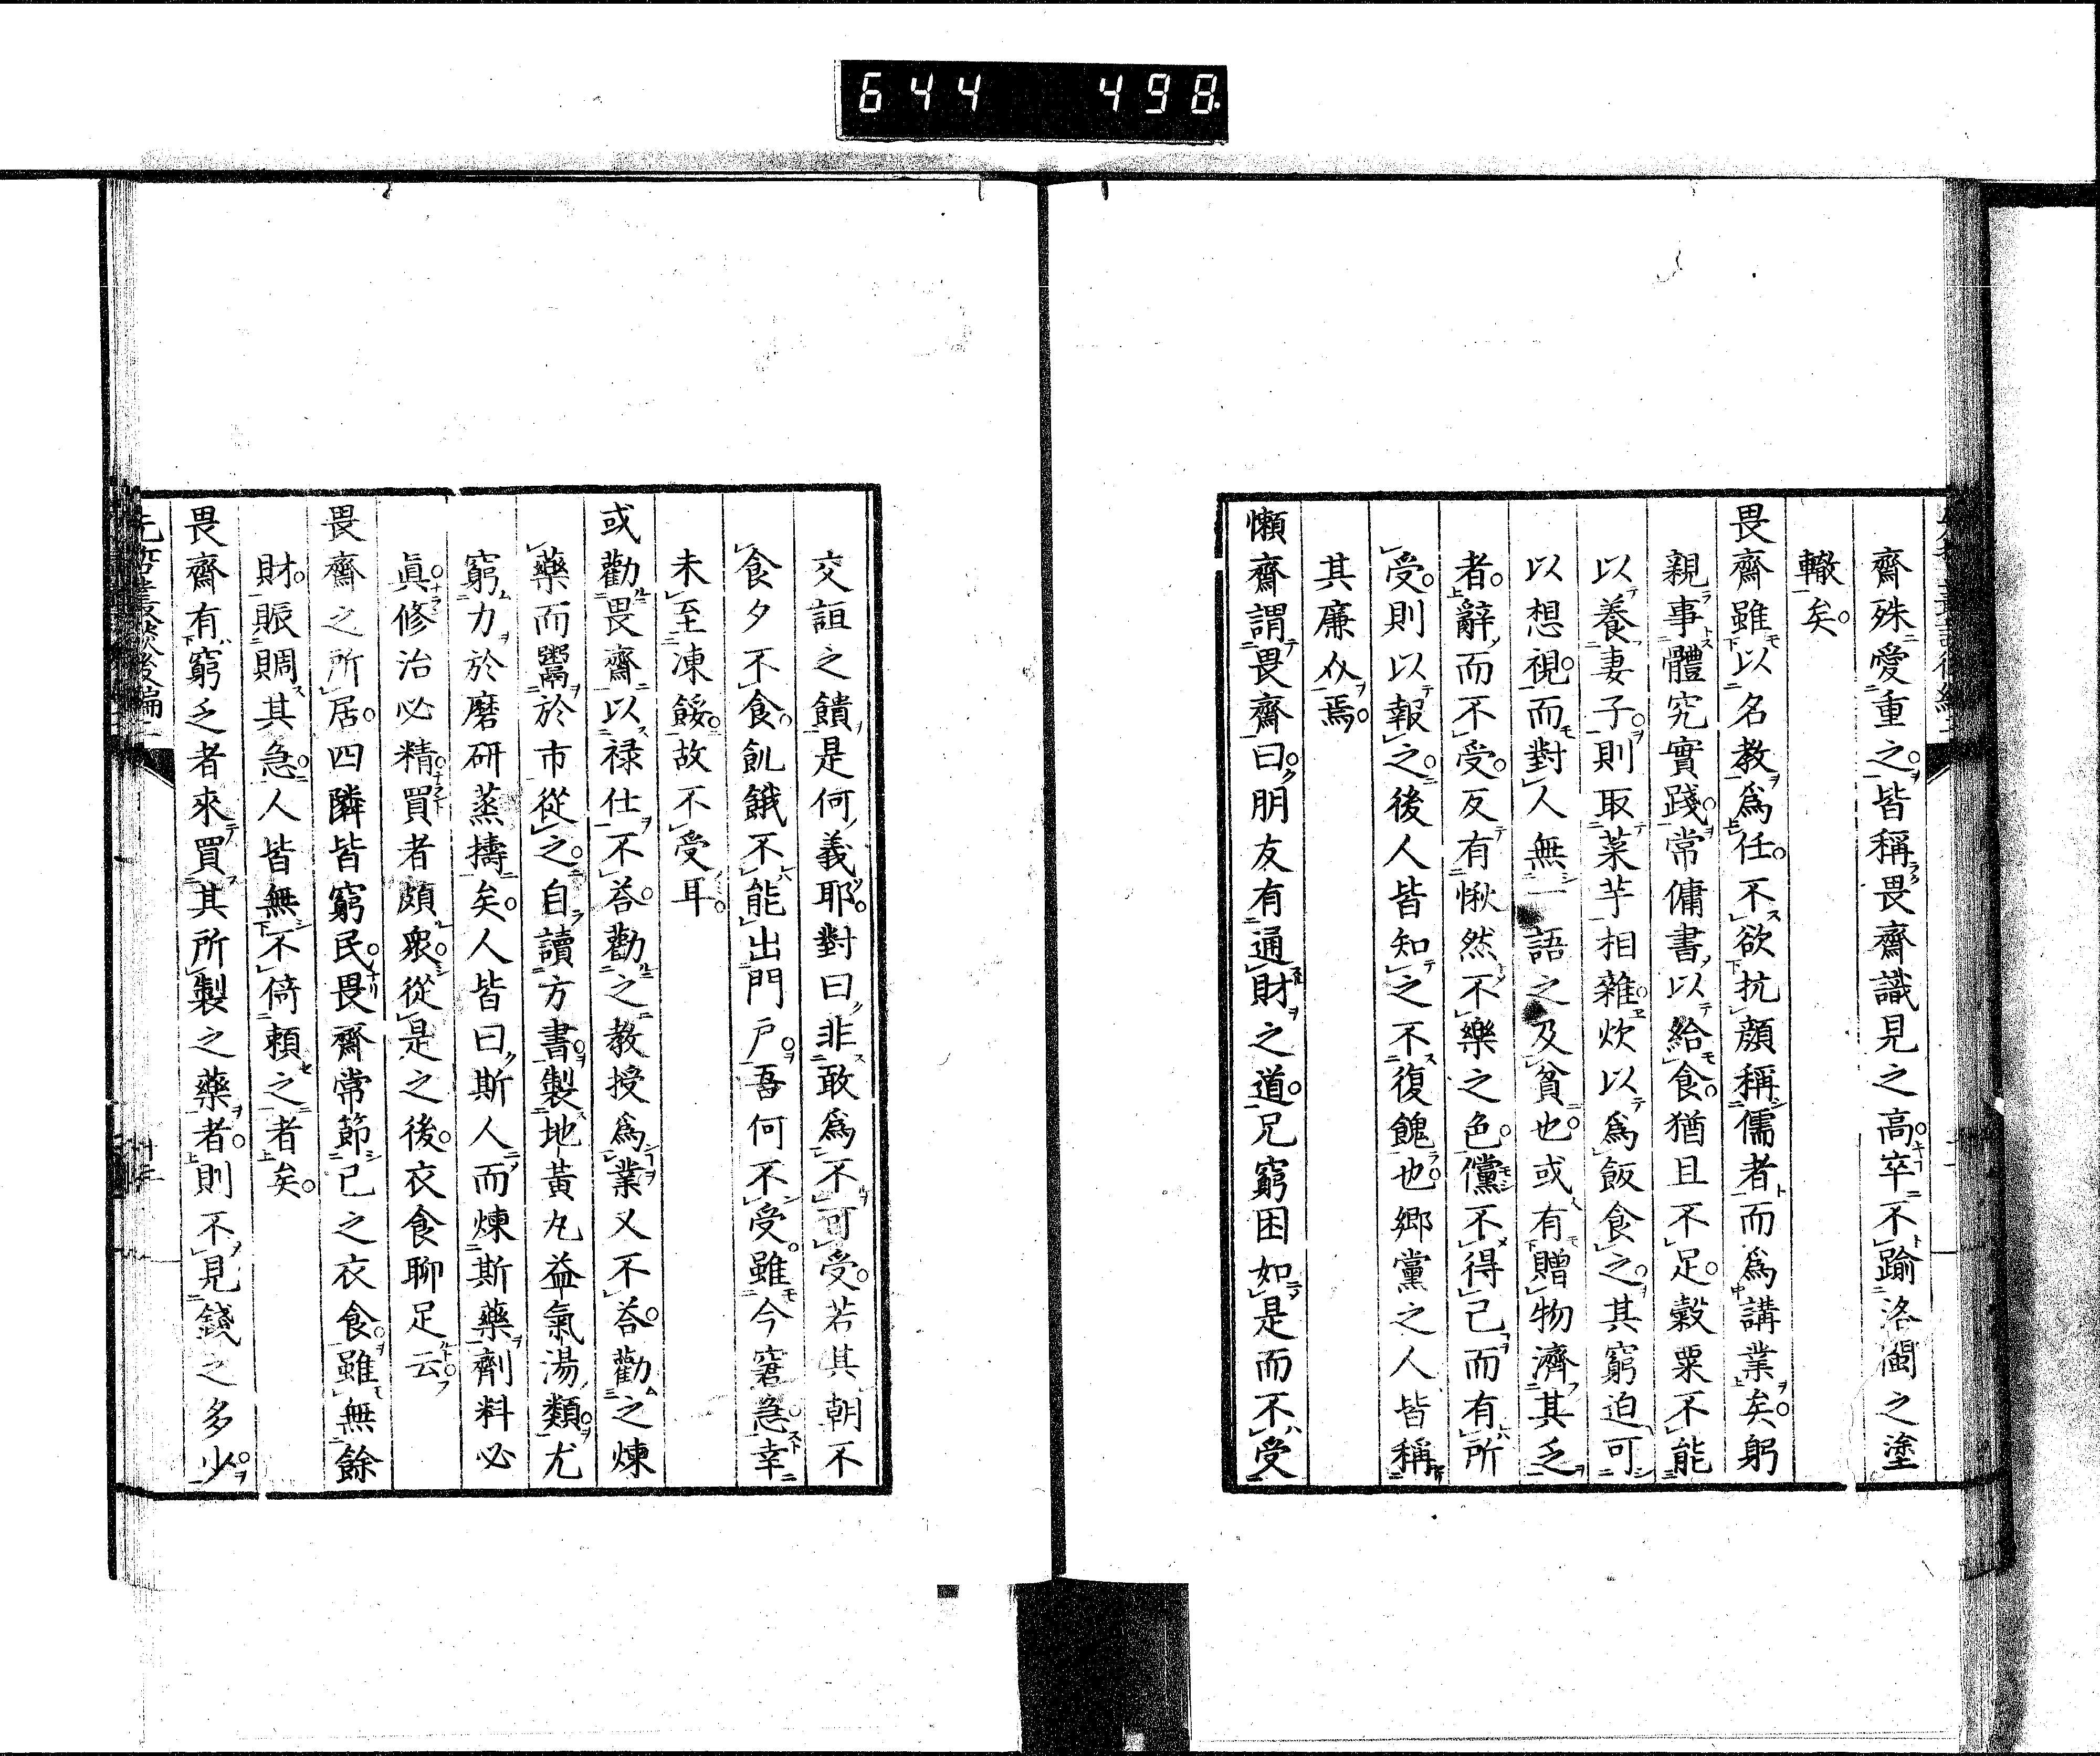 644 498
齋殊愛重之。皆稱畏齋識見之高。卒不踰洛閩之塗
轍矣。
畏齋雖以名教爲任。不欲抗顏稱儒者而爲講業矣。躬
親事體究實踐。常傭書以給食。猶且不足。穀粟不能
以養妻子。則取菜芋相雜。炊以爲飯食之。其窮迫可
以想視。而對人無一語之及貧也。或有贈物濟其乏
者。辭而不受。反有愀然不樂之色。儻不得已而有所
受。則以報之。後人皆知之不復餽也。鄉黨之人皆稱
其廉介焉。
懶齋謂畏齋曰。朋友有通財之道。兄窮困如是而不受
交誼之饋。是何義耶。對曰。非敢爲不可受。若其朝不
食夕不食。飢餓不能出門戶。吾何不受。雖今窘急。幸
未至凍餒。故不受耳。
或勸畏齋以祿仕。不荅。勸之教授爲業。又不荅。勸之煉
藥而鬻於市。從之。自讀方書。製地黃丸益氣湯類。尤
窮力於磨研蒸擣矣。人皆曰。斯人而煉斯藥。劑料必
眞。修治必精。買者頗衆。從是之後。衣食聊足云。
畏齋之所居。四隣皆窮民。畏齋常節己之衣食。雖無餘
財。賑賙其急。人皆無不倚賴之者矣。
畏齋有窮乏者來買其所製之藥者。則不見錢之多少。
先哲叢談後編二